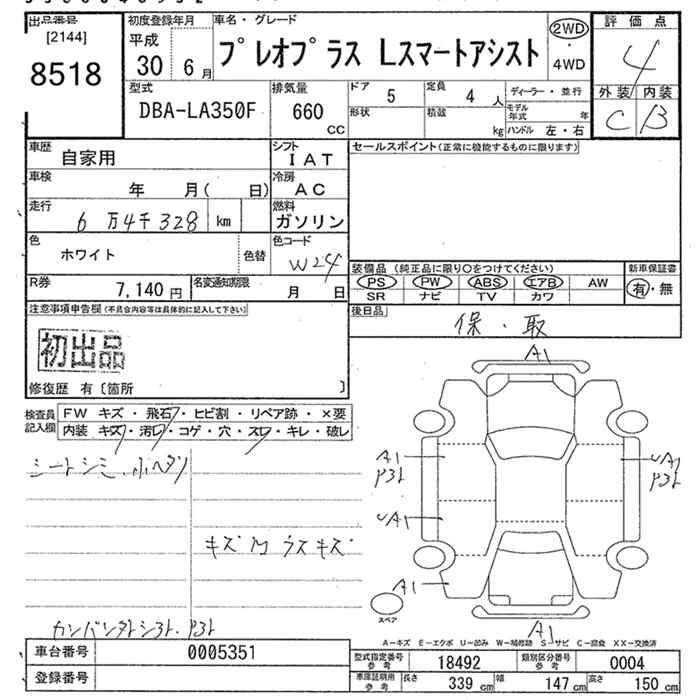 出品番号
[2144]
8518
初度登録年月
平成
30年 6月
車名・グレード
プレオプラス Lスマートアシスト
2WD
・
4WD
評価点
4
外装 内装
C B
型式
DBA-LA350F
排気量
660
CC
ドア 5
形状
定員 4 人
積載 kg
ディーラー・並行
モデル年式 年
ハンドル 左・右
車歴
自家用
シフト
IAT
車検
年 月( 日)
冷房
AC
走行
6万4千328 km
燃料
ガソリン
色
ホワイト
色替
色コード
W24
R券
7,140円
名変通知期限
月 日
セールスポイント(正常に機能するものに限ります)
装備品 (純正品に限り〇をつけてください)
PS PW ABS エアB AW
SR ナビ TV カワ
新車保証書
有・無
後日品
保・取
注意事項申告欄(不具合内容等は具体的に記入して下さい)
初出品
修復歴 有〔箇所 〕
検査員記入欄
FW キズ・飛石・ヒビ割・リペア跡・×要
内装 キズ・汚レ・コゲ・穴・スレ・キレ・破レ
シートシミ・小ヘタリ
キズM ラスキズ
A1
A1
P3ト
UA1
P3ト
UA1
A1
スペア
A1
A-キズ E-エクボ U-凹み W-補修跡 S-サビ C-腐食 XX-交換済
車台番号 0005351
登録番号
型式指定番号 参考 18492
類別区分番号 参考 0004
車庫証明用 参考 長さ 339cm 幅 147cm 高さ 150cm